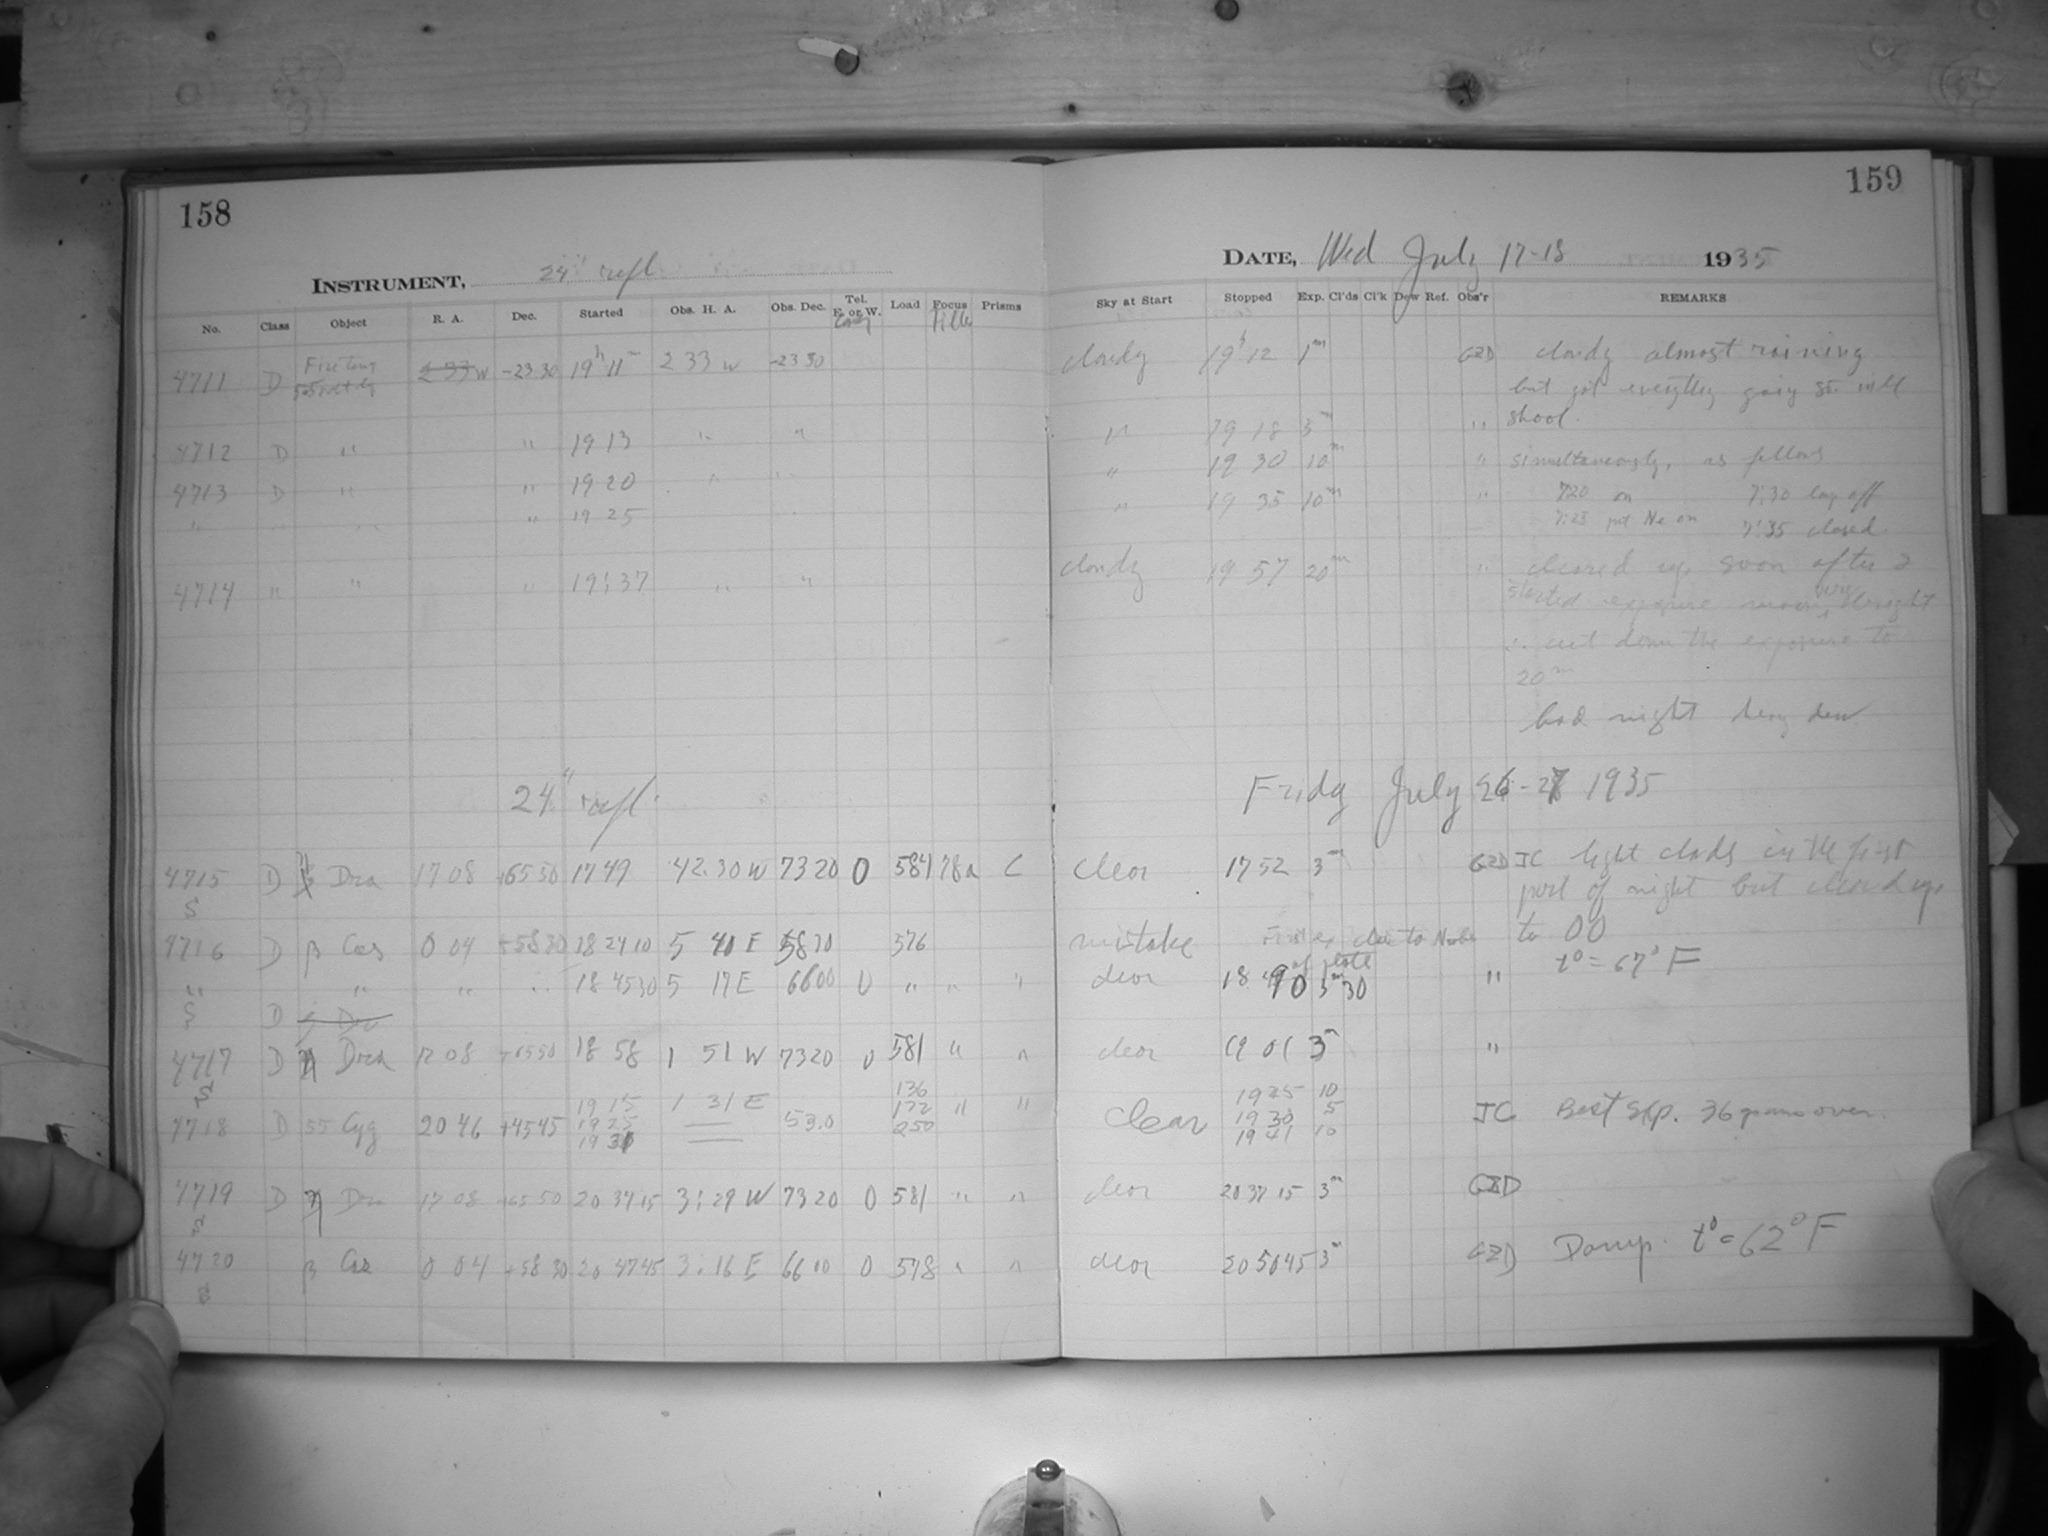 158
159
INSTRUMENT, 24" refl
DATE, Wed July 17-18 1935
No. Class Object R. A. Dec. Started Obs. H. A. Obs. Dec. Tel. E. or W. Load Focus Prisms
Sky at Start Stopped Exp. Cl'ds Cl'k Dew Ref. Obs'r REMARKS
4711 D -23 30 19h 11m 2 33 W -23 30 cloudy 19h 12 1m GZD cloudy almost raining
but got going
4712 D " " 19 13 " " " 19 18 5m " shool.
4713 D " " 19 20 " " " 19 30 10m " simultaneously, as follows
" " " " 19 25 " 19 35 10m " 7:20 on 7:30 cap off
7:25 put Ne on 7:35 closed.
4714 " " " 19:37 " " cloudy 19 57 20m " cleared up soon after I
started exposure very bright
∴ cut down the exposure to
20m
bad night heavy dew
24" refl. Friday July 26-27 1935
4715 D Dra 17 08 +65 50 17 49 42.30 W 73 20 0 584 78a C clear 17 52 3m GZD JC light clouds in the first
S part of night but cleared up
4716 D β Cas 0 04 +58 30 18 24 10 5 40 E 58 30 576 mistake to 00
of plate t° = 67° F
" " " " 18 45 30 5 17 E 66 00 0 " " " clear 18 3m 30 "
S D
4717 D η Dra 17 08 +65 50 18 58 1 51 W 73 20 0 581 " " clear 19 01 3m "
S
4718 D 55 Cyg 20 46 +45 45 19 15 1 31 E 53.0 136 " " Clear 19 25 10 JC Best Exp. 36 grams over.
19 25 172 19 30 5
19 31 250 19 41 10
4719 D η Dra 17 08 +65 50 20 37 15 3:29 W 73 20 0 581 " " clear 20 37 15 3m GZD
S
4720 β Cas 0 04 +58 30 20 47 45 3:16 E 66 10 0 578 " " clear 20 50 45 3m GZD Damp. t° = 62° F
S